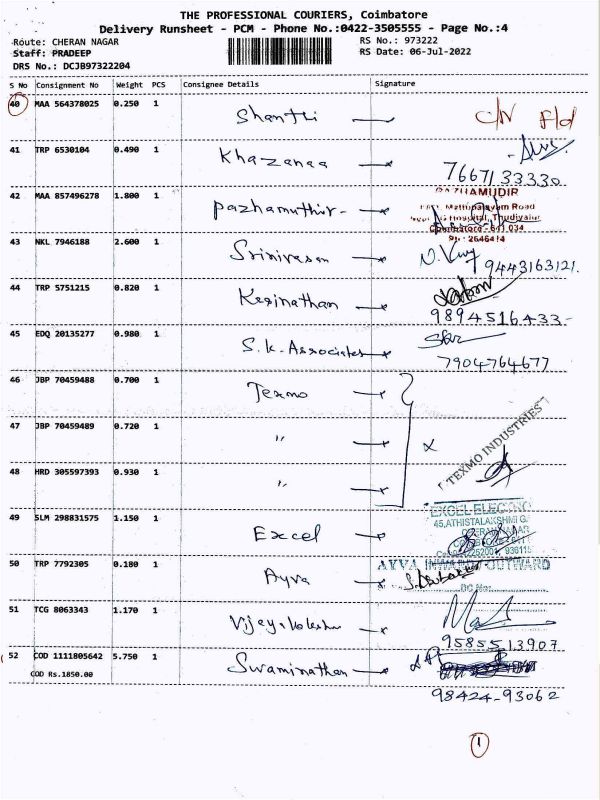 THE PROFESSIONAL COURIERS, Coimbatore
Delivery Runsheet - PCM - Phone No.:0422-3505555 - Page No.:4
Route: CHERAN NAGAR
RS No.: 973222
Staff: PRADEEP
RS Date: 06-Jul-2022
DRS No.: DCJB97322204
S No Consignment No Weight PCS Consignee Details Signature
40 MAA 564378025 0.250 1 Shanthi
41 TRP 6530104 0.490 1 Khazanaa
7667133330
42 MAA 857496278 1.800 1 pazhamuthir-
PAZHAMUDIR
Mettupalayam Road
Hospital, Thudiyalur
Coimbatore - 641 034
Ph: 2646414
43 NKL 7946188 2.600 1 Srinivasan
9443163121.
44 TRP 5751215 0.820 1 Kesinathan
9894516433-
45 EDQ 20135277 0.980 1 S.K. Associates
7904764677
46 JBP 70459488 0.700 1 Texmo
47 JBP 70459489 0.720 1 "
TEXMO INDUSTRIES
48 HRD 305597393 0.930 1 "
49 SLM 298831575 1.150 1 Excel
EXCEL
45, ATHISTALAKSHMI
50 TRP 7792305 0.180 1 Ayva
AYVA INWARD / OUTWARD
51 TCG 8063343 1.170 1
9585513907
52 COD 1111805642 5.750 1 Swaminathan
COD Rs.1850.00
98424-93062
1